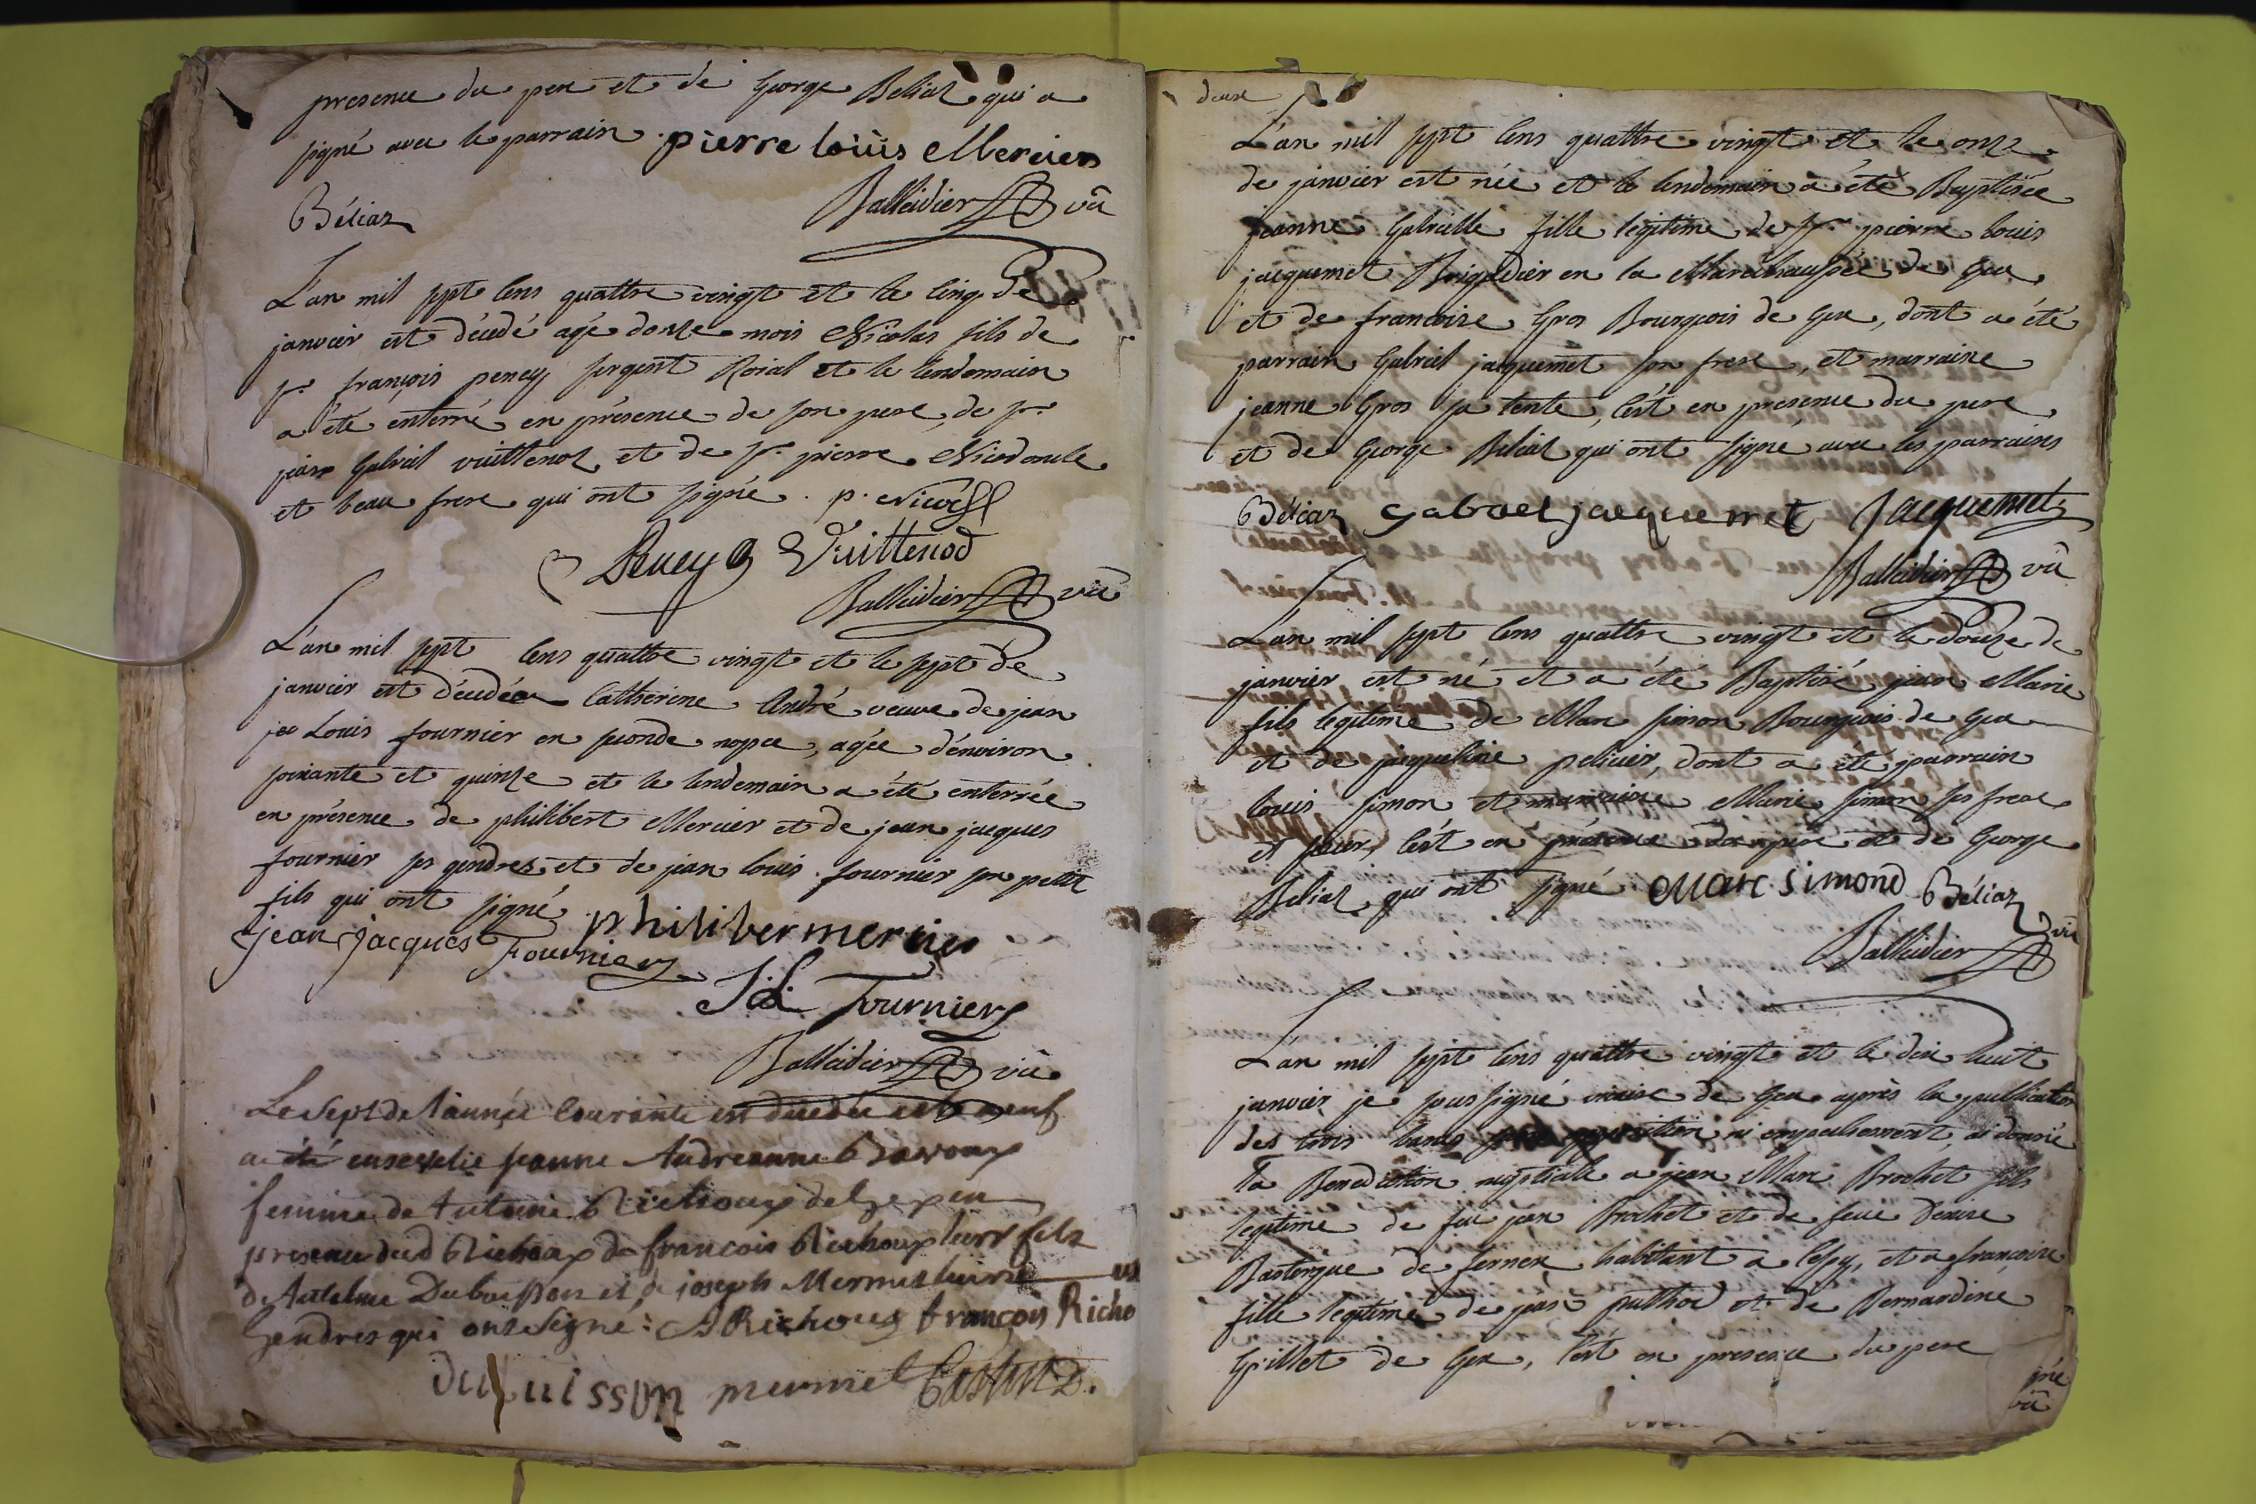 presence du pere et de George Beliaz qui a
signé avec le parrain. pierre loüis Mercier
Béliaz Balleidier vic
L'an mil sept cens quattre vingt et le cinq de
janvier est décédé agé donze mois Nicolas fils de
sr. françois peney sergent Roial et le lendemain
a été enterré en présence de son pere, de sr.
jean Gabriel vuittenoz et de sr. pierre
et beau frere qui ont signé. p.
Peney Vuittenod
Balleidier vic
L'an mil sept cens quattre vingt et le sept de
janvier est décédée Catherine André veuve de jean
Louis fournier en seconde nopce, agée d'environ
soixante et quinze et le lendemain a été enterrée
en présence de philibert Mercier et de jean jacques
fournier ses gendres et de jean louis fournier son petit
fils qui ont signé. philiber mercier
jean jacques Fournier
J L Fournier
Balleidier vic
Le sept de l'année Courante est décédée et le neuf
a été ensevelie jeanne Andreanne
femme de Antoine Richoux de Gex en
presence dud Richoux de francois Richoux leur fils
de Antelme Dubuisson et de joseph Mermet leurs
Gendres qui ont signé: A Richoux françois Richo
dubuisson mermet
deux
L'an mil sept cens quattre vingt et le onze
de janvier est née et le lendemain a été Baptisée
jeanne Gabrielle fille legitime de sr. pierre louis
jacquemet Brigadier en la Marechaussée de Gex
et de francoise Gros Bourgeois de Gex, dont a été
parrain Gabriel jacquemet son frere, et marraine
jeanne Gros sa tente, c'est en presence du pere
et de George Béliaz qui ont signé avec les parrains
Béliaz Gabriel jacquemet Jacquemet
Balleidier vic
L'an mil sept cens quattre vingt et le douze de
janvier est né et a été Baptisé jean Marie
fils legitime de Marc simon Bourgeois de Gex
et de jaqueline pelicier, dont a été parrain
louis simon et marraine Marie simon ses frere
et soeur, c'est en présence du pere et de George
Beliaz qui ont signé Marc Simond Béliaz
Balleidier vic
L'an mil sept cens quattre vingt et le dix huit
janvier je soussigné vicaire de Gex après la publication
des trois bans opposition ni empechement, ai donné
la Benediction nuptiale a jean Marc Brochet fils
legitime de feu jean Brochet et de feue
de fernex habitant a Cessy, et a francoise
fille legitime de jean puthod et de Bernardine
Grillet de Gex, c'est en presence du pere